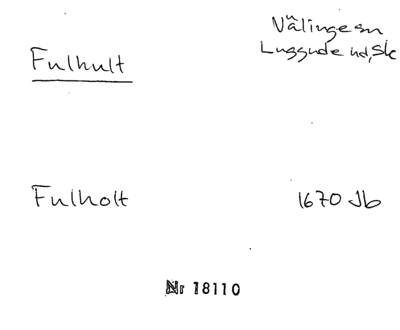 Fulhult
Välinge sn
Luggude hd, Sk
Fulholt
1670 Jb
Nr 18110